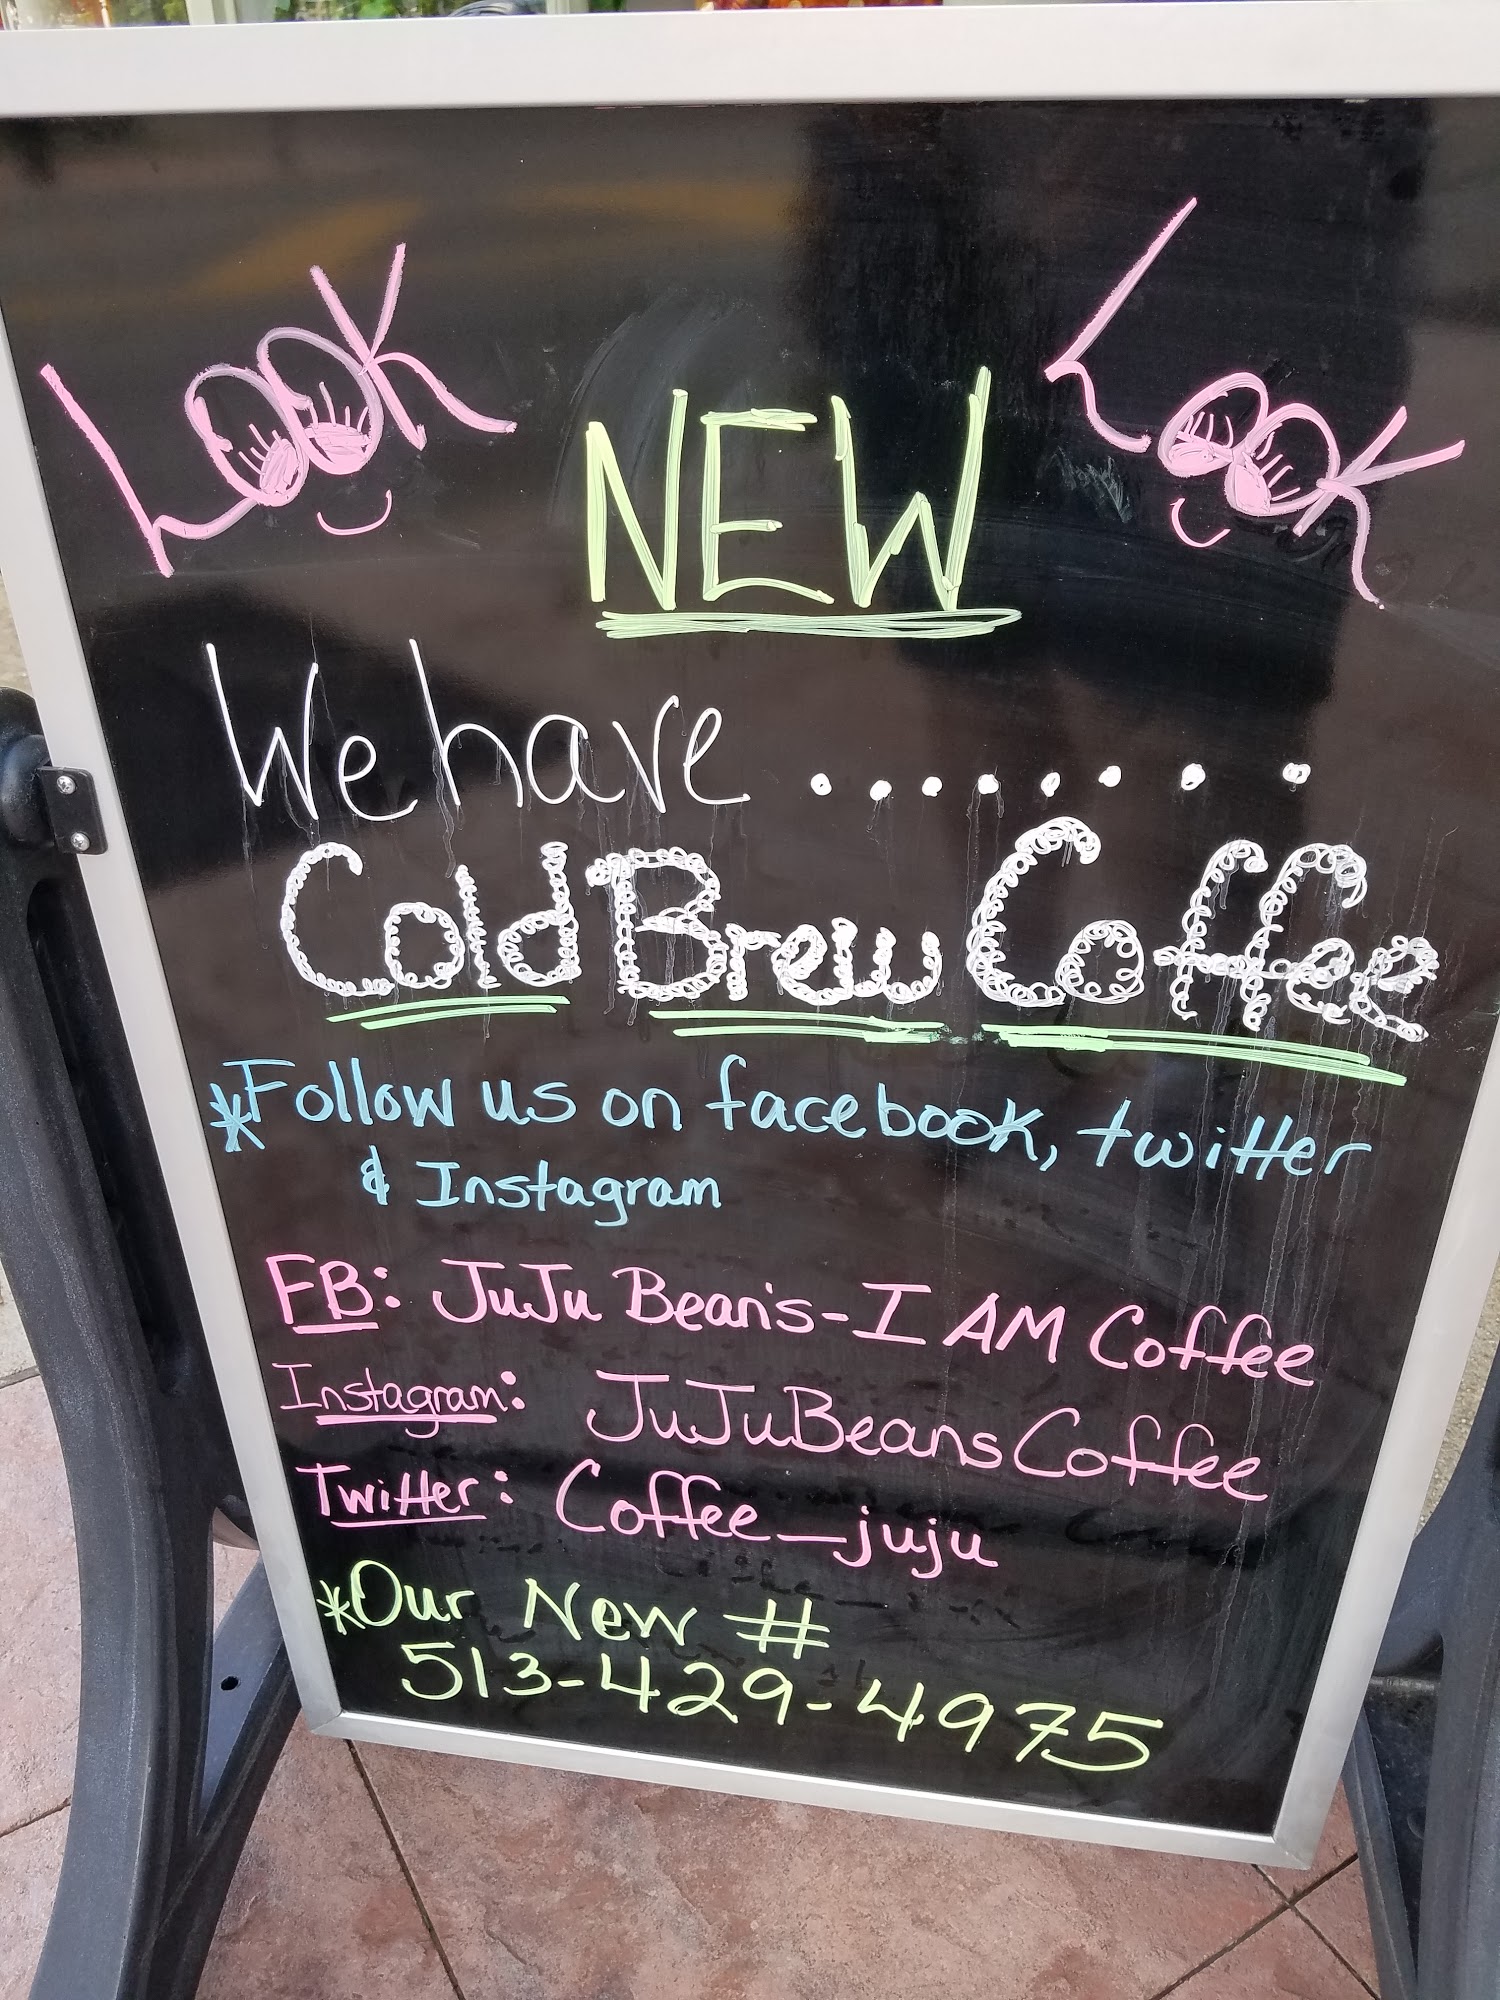 Look Look
NEW
We have ........
Cold Brew Coffee
*Follow us on facebook, twitter
& Instagram
FB: JuJu Bean's-I AM Coffee
Instagram: JuJuBeansCoffee
Twitter: Coffee_juju
*Our New #
513-429-4975